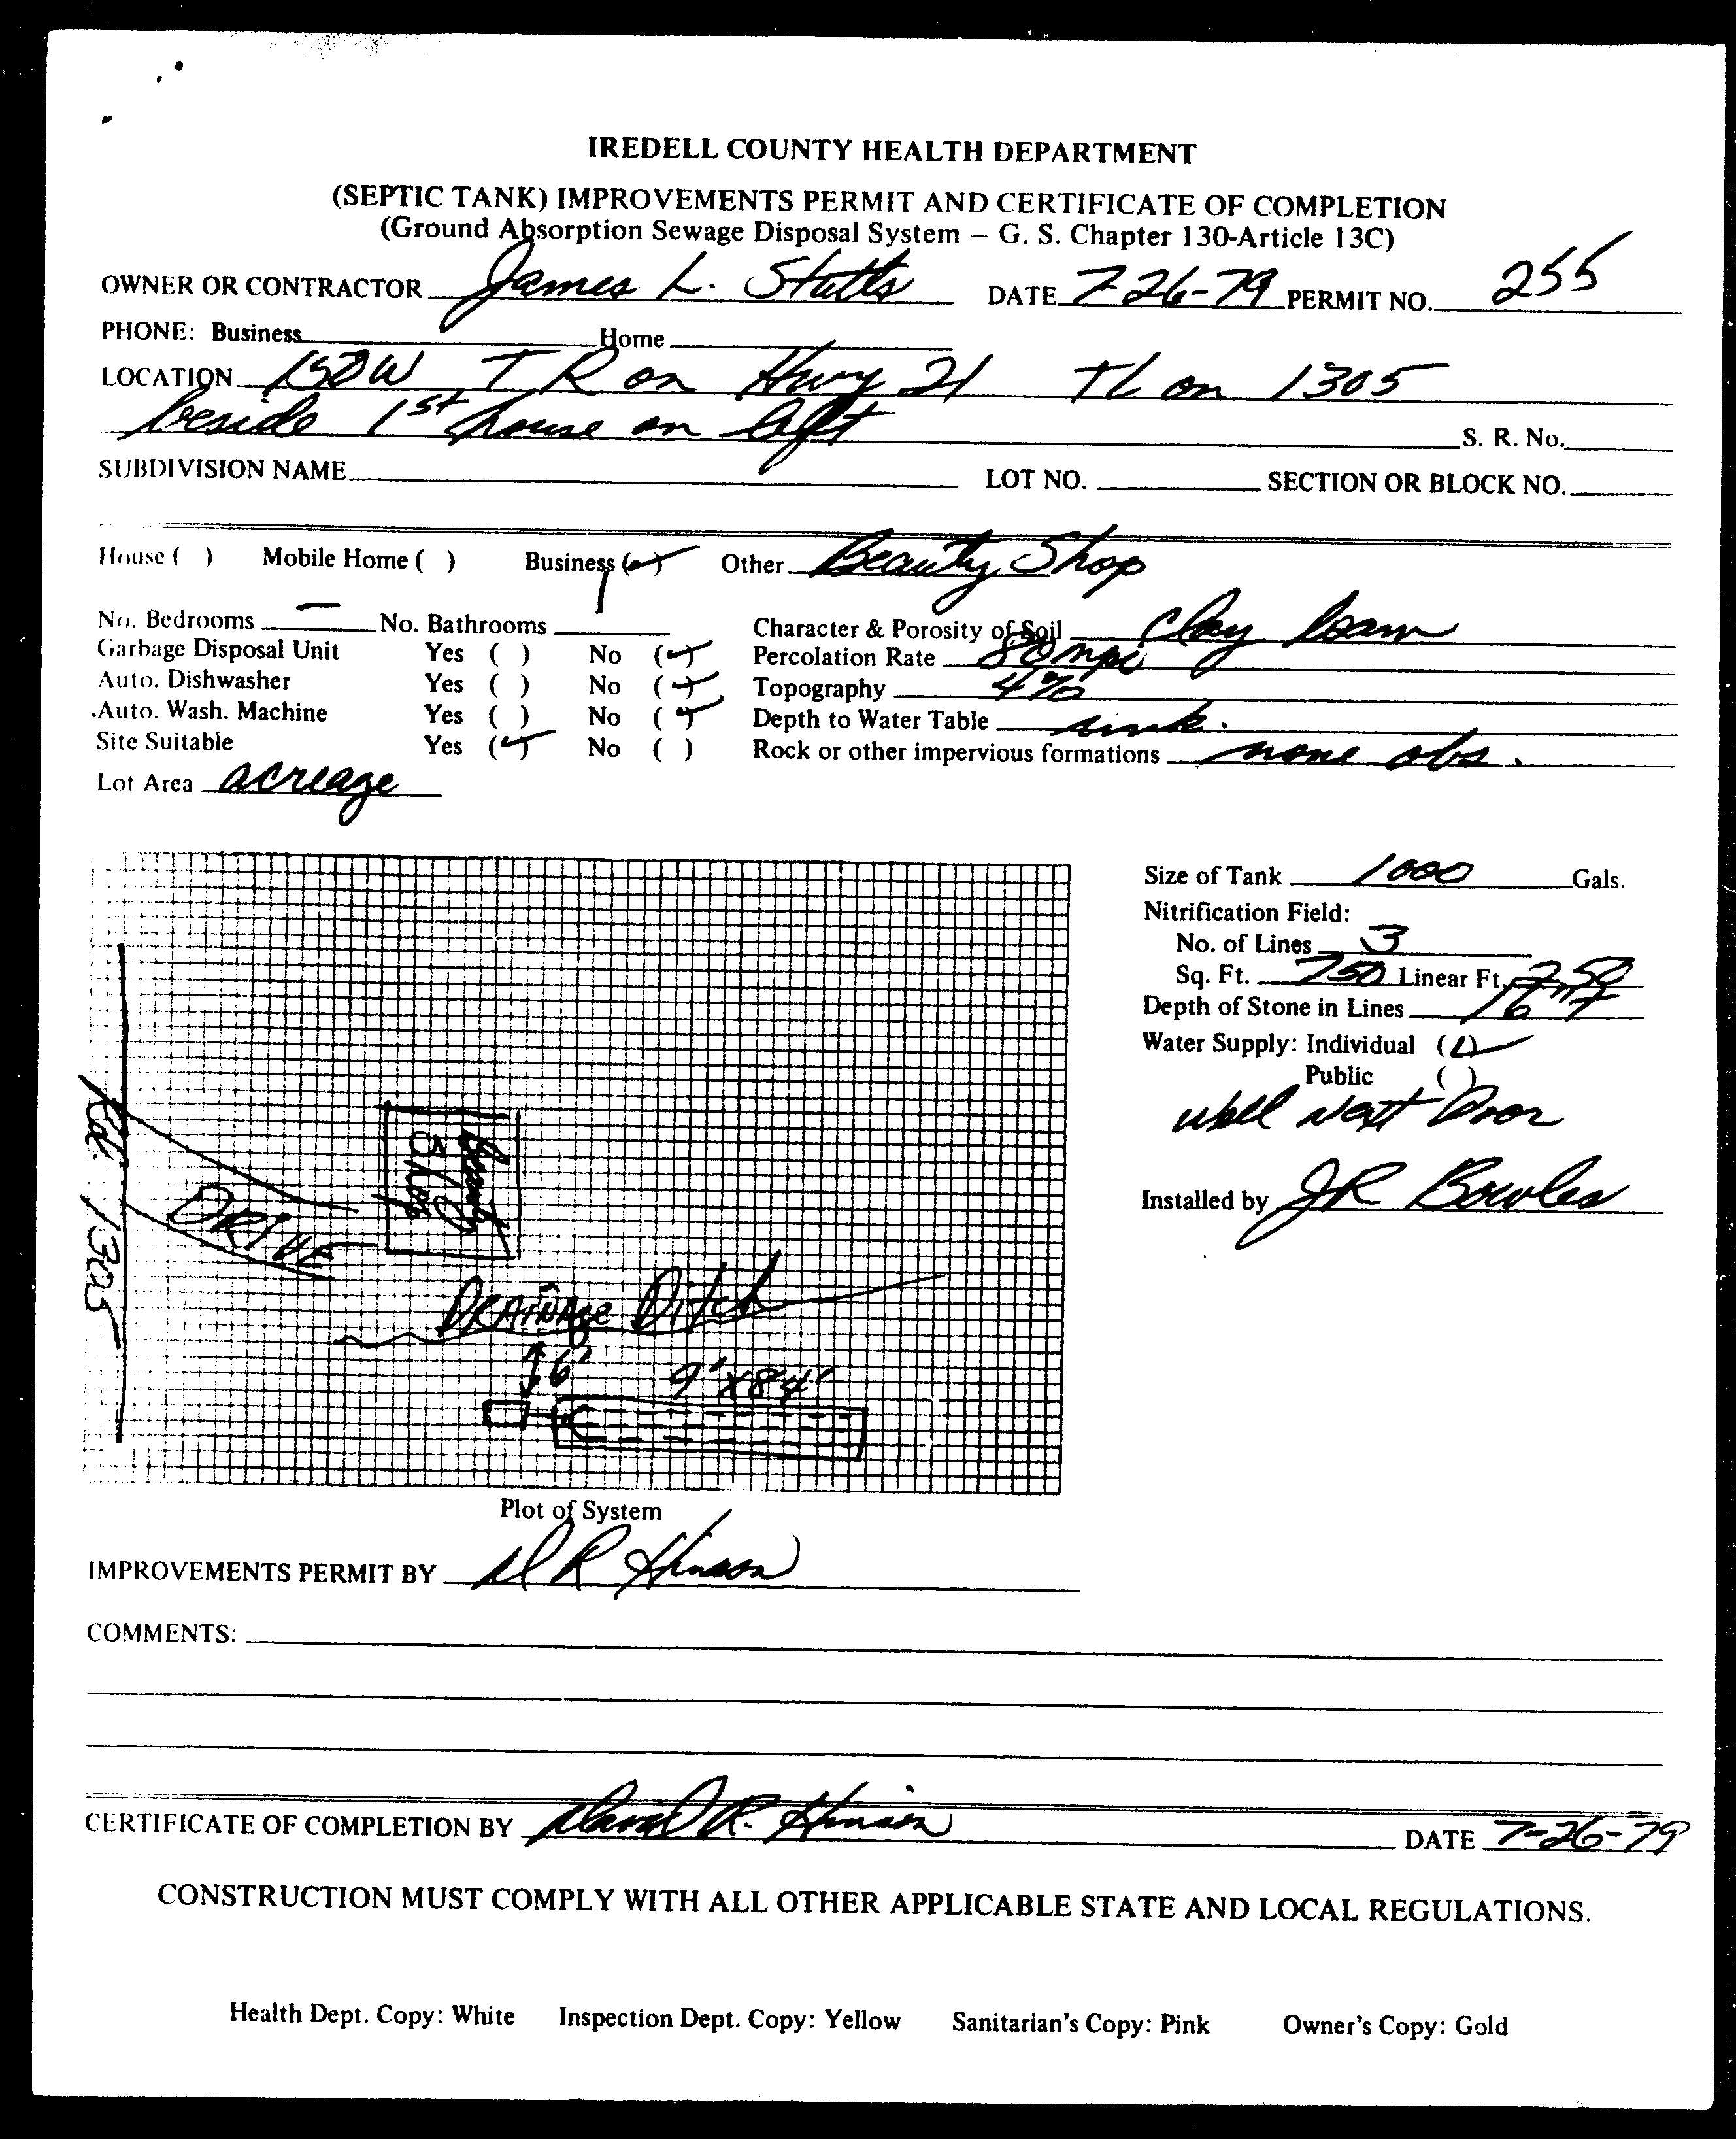 IREDELL COUNTY HEALTH DEPARTMENT
(SEPTIC TANK) IMPROVEMENTS PERMIT AND CERTIFICATE OF COMPLETION
(Ground Absorption Sewage Disposal System – G. S. Chapter 130-Article 13C)
OWNER OR CONTRACTOR James L. Statts DATE 7-26-79 PERMIT NO. 255
PHONE: Business Home
LOCATION 150W TR on Hwy 21 TL on 1305
beside 1st house on left S. R. No.
SUBDIVISION NAME LOT NO. SECTION OR BLOCK NO.
House ( ) Mobile Home ( ) Business (✓) Other Beauty Shop
No. Bedrooms — No. Bathrooms 1 Character & Porosity of Soil Clay loam
Garbage Disposal Unit Yes ( ) No (✓) Percolation Rate 80 mpi
Auto. Dishwasher Yes ( ) No (✓) Topography 4%
Auto. Wash. Machine Yes ( ) No (✓) Depth to Water Table unk.
Site Suitable Yes (✓) No ( ) Rock or other impervious formations none obs.
Lot Area acreage
Size of Tank 1000 Gals.
Nitrification Field:
No. of Lines 3
Sq. Ft. 750 Linear Ft. 250
Depth of Stone in Lines
Water Supply: Individual (✓)
Public ( )
well next Door
Installed by JR Bowles
Rd. 1305
DRIVE
Beauty
Shop
DRAiNAge Ditch
6'
9'x84'
Plot of System
IMPROVEMENTS PERMIT BY D R Hinson
COMMENTS:
CERTIFICATE OF COMPLETION BY David R. Hinson DATE 7-26-79
CONSTRUCTION MUST COMPLY WITH ALL OTHER APPLICABLE STATE AND LOCAL REGULATIONS.
Health Dept. Copy: White Inspection Dept. Copy: Yellow Sanitarian's Copy: Pink Owner's Copy: Gold